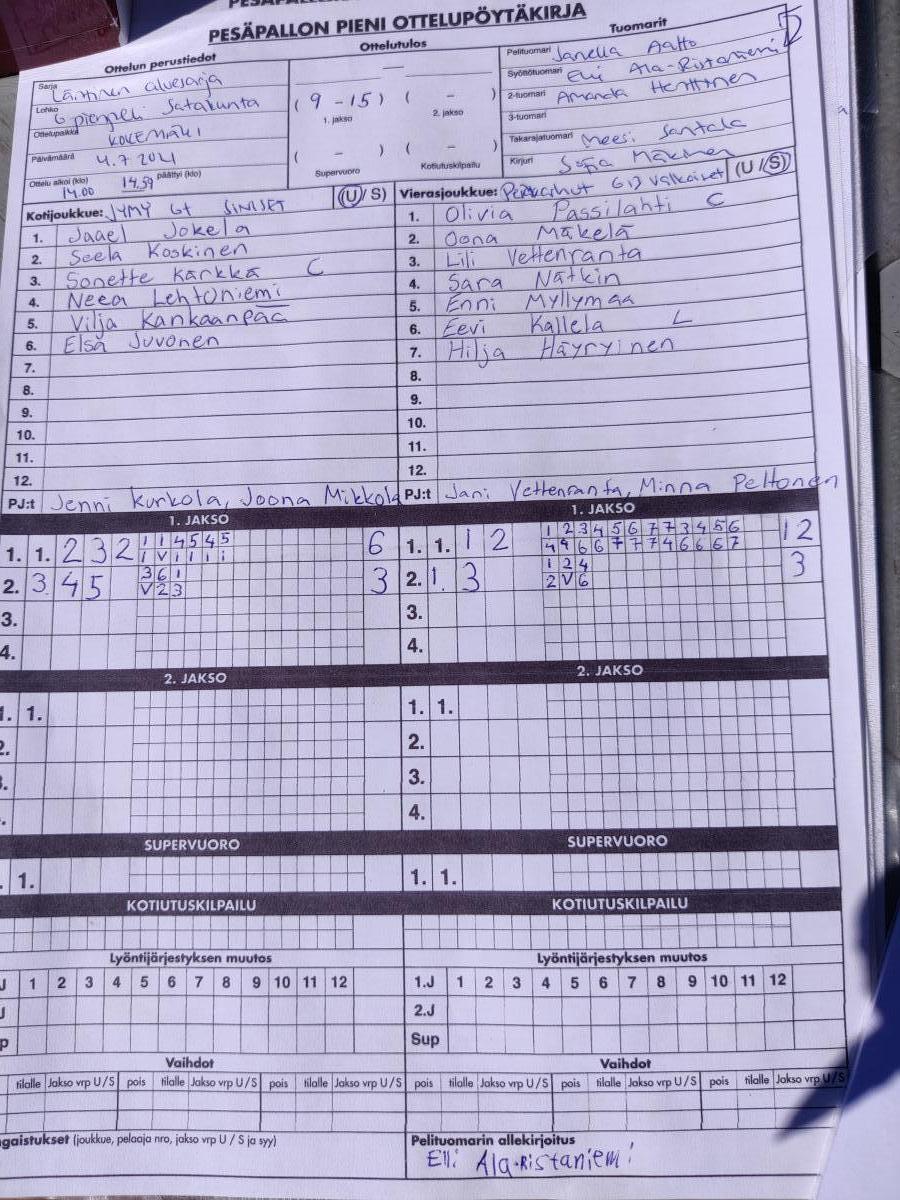 PESÄPALLON PIENI OTTELUPÖYTÄKIRJA
Ottelun perustiedot
Ottelutulos
Tuomarit
Sarja Läntinen aluesarja
Lohko G pienpeli Satakunta
Ottelupaikka KOKEMÄKI
Päivämäärä 4.7 2021
Ottelu alkoi (klo) päättyi (klo)
14.00 14.59
—
( 9 - 15 ) ( - )
1. jakso 2. jakso
( - ) ( - )
Supervuoro Kotiutuskilpailu
Pelituomari Janella Aalto
Syöttötuomari Elli Ala-Ristaniemi
2-tuomari Amanda Henttinen
3-tuomari
Takarajatuomari Neesi Santala
Kirjuri Sofia Mäkinen
Kotijoukkue: JYMY G+ SINISET (U / S)
1. Jaael Jokela
2. Seela Koskinen
3. Sonette Kärkkä C
4. Neea Lehtoniemi
5. Vilja Kankaanpää
6. Elsa Juvonen
7.
8.
9.
10.
11.
12.
PJ:t Jenni Kurkola, Joona Mikkola
Vierasjoukkue: Pesäkarhut G13 Valkoiset (U / S)
1. Olivia Passilahti C
2. Oona Mäkelä
3. Lili Vettenranta
4. Sara Nätkin
5. Enni Myllymaa
6. Eevi Kallela L
7. Hilja Häyryinen
8.
9.
10.
11.
12.
PJ:t Jani Vettenranta, Minna Peltonen
1. JAKSO
1. 1. 2 3 2 1 1 4 5 4 5 6
1 V 1 1 1 1
2. 3. 4 5 3 6 1 3
V 2 3
3.
4.
1. JAKSO
1. 1. 1 2 1 2 3 4 5 6 7 7 3 4 5 6 12
4 4 6 6 7 7 7 4 6 6 6 7
2. 1. 3 1 2 4 3
2 V 6
3.
4.
2. JAKSO
1. 1.
2.
2. JAKSO
1. 1.
2.
3.
4.
SUPERVUORO
1.
SUPERVUORO
1. 1.
KOTIUTUSKILPAILU
KOTIUTUSKILPAILU
Lyöntijärjestyksen muutos
J 1 2 3 4 5 6 7 8 9 10 11 12
J
p
Lyöntijärjestyksen muutos
1.J 1 2 3 4 5 6 7 8 9 10 11 12
2.J
Sup
Vaihdot
tilalle Jakso vrp U / S pois tilalle Jakso vrp U / S pois tilalle Jakso vrp U / S
Vaihdot
pois tilalle Jakso vrp U / S pois tilalle Jakso vrp U / S pois tilalle Jakso vrp U / S
ngaistukset (joukkue, pelaaja nro, jakso vrp U / S ja syy)
Pelituomarin allekirjoitus
Elli Ala-Ristaniemi